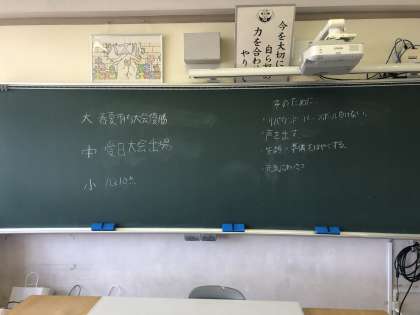 今を大切に
自ら
力を合わ
やり
大 春夏市内大会優勝
中 愛日大会出場
小 1人10点
そのために
・リバウンド、ルーズボール負けない。
・声を出す
・準備をはやくする。
・元気にあいさつ